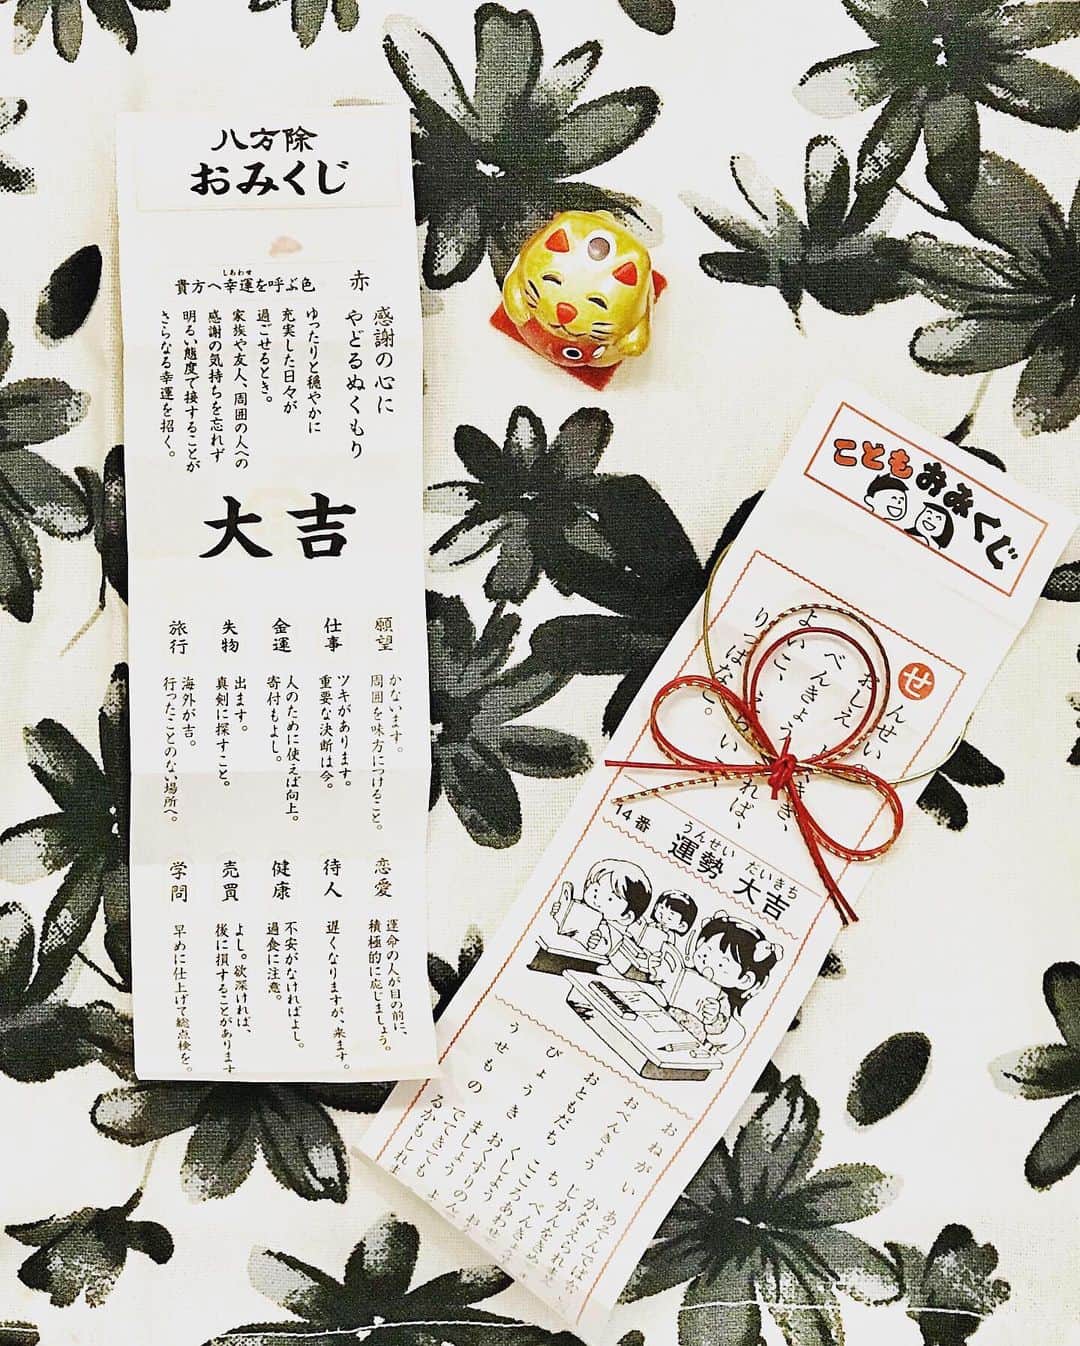 八方除
おみくじ
しあわせ
貴方へ幸運を呼ぶ色
赤
感謝の心に
やどるぬくもり
ゆったりと穏やかに
充実した日々が
過ごせるとき。
家族や友人、周囲の人への
感謝の気持ちを忘れず
明るい態度で接することが
さらなる幸運を招く。
大吉
願望
かないます。
周囲を味方につけること。
仕事
ツキがあります。
重要な決断は今。
金運
人のために使えば向上。
寄付もよし。
失物
出ます。
真剣に探すこと。
旅行
海外が吉。
行ったことのない場所へ。
恋愛
運命の人が目の前に、
積極的に応じましょう。
待人
遅くなりますが、来ます。
健康
不安がなければよし。
過食に注意。
売買
よし。欲深ければ、
後に損することがあります
学問
早めに仕上げて総点検を。
こどもおみくじ
せんせい
おしえ
べんきょう
よいこ、
れば、
りっぱな
14番
うんせい だいきち
運勢 大吉
おねがい
かなえられ
おべんきょう
じかんをきめ
おともだち
こころあわせ
びょうき
おくすりのん
うせもの
でてきても
るかもしれま